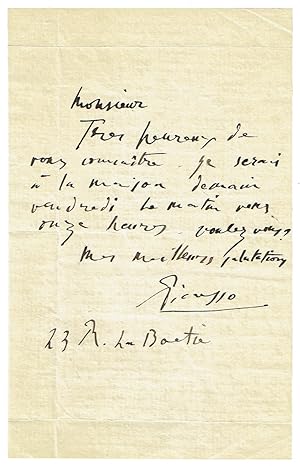 Monsieur
Tres heureux de
vous connaitre. je serai
à la maison demain
vendredi le matin vers
onze heures. voulez vous
Mes meilleures salutations
Picasso
23 R. La Boetie